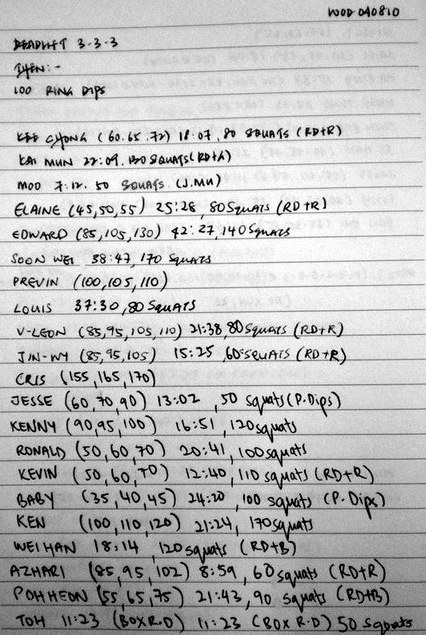 WOD 040810
DEADLIFT 3-3-3
THEN:-
100 RING DIPS
KEE CHONG (60.65.72) 18:07, 80 SQUATS (RD+R)
KAI MUN 22:09. 130 SQUATS (RD+R)
MOO 7:12. 50 SQUATS (J.MU)
ELAINE (45,50,55) 25:28, 80 SQUATS (RD+R)
EDWARD (85,105,130) 42:27, 140 SQUATS
SOON WEI 38:47, 170 SQUATS
PREVIN (100,105,110)
LOUIS 37:30, 80 SQUATS
V-LEON (85,95,105,110) 21:38, 80 SQUATS (RD+R)
JIN-WY (85,95,105) 15:25, 60 SQUATS (RD+R)
CRIS (155,165,170)
JESSE (60,70,90) 13:02, 50 squats (P.Dips)
KENNY (90,95,100) 16:51, 120 squats
RONALD (50,60,70) 20:41, 100 squats
KEVIN (50,60,70) 12:40, 110 squats (RD+R)
BABY (35,40,45) 24:20, 100 squats (P.Dips)
KEN (100,110,120) 21:24, 170 squats
WEIHAN 18:14 120 squats (RD+B)
AZHARI (85,95,102) 8:59, 60 squats (RD+R)
POHHEON (55,65,75) 21:43, 90 squats (RD+B)
TOH 11:23 (BOX R.D) 11:23 (BOX R.D) 50 squats